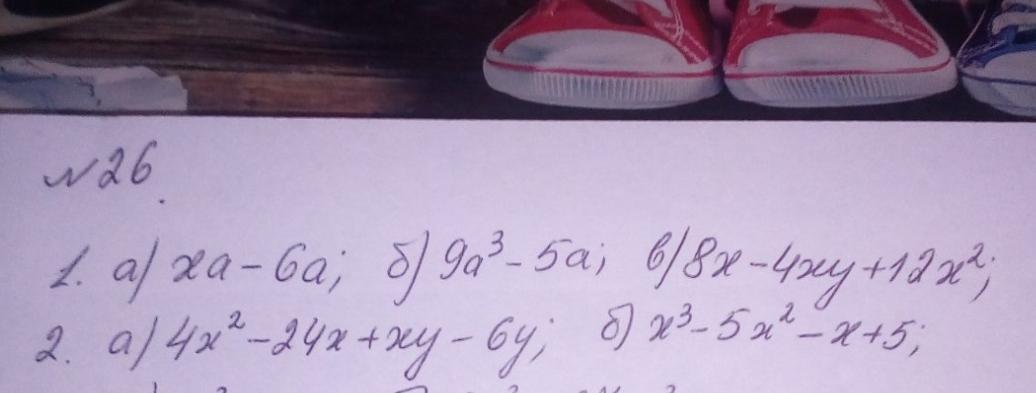 №26.
1. а) xa - 6a; б) 9a³ - 5a; в) 8x - 4xy + 12x²;
2. а) 4x² - 24x + xy - 6y; б) x³ - 5x² - x + 5;